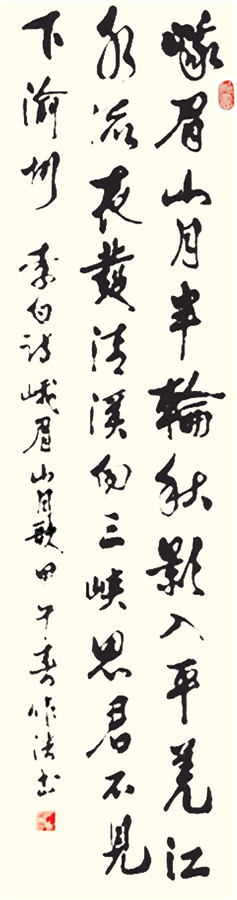 峨眉山月半輪秋影入平羌江
水流夜發清溪向三峽思君不見
下渝州 李白詩峨眉山月歌 甲午春作